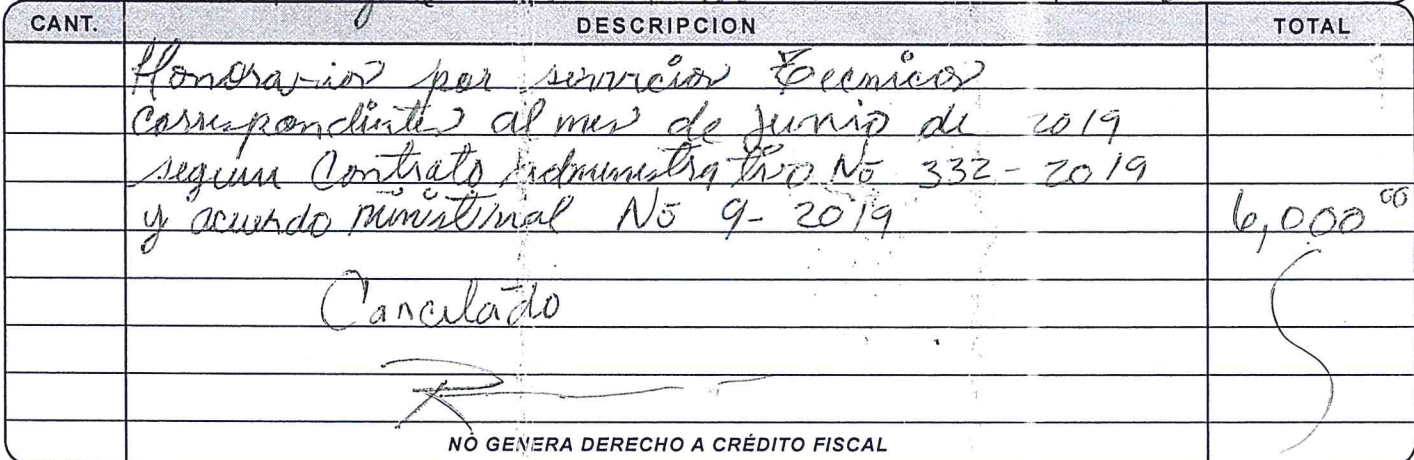 CANT. DESCRIPCION TOTAL
Honorarios por servicios Tecnicos
correspondientes al mes de Junio de 2019
segun Contrato Administrativo No 332-2019
y acuerdo ministerial No 9-2019 6,000 00
Cancelado
NO GENERA DERECHO A CRÉDITO FISCAL